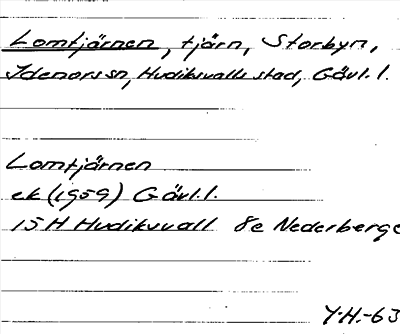 Lomtjärnen, tjärn, Storbyn,
Idenors sn, Hudiksvalls stad, Gävl. l.
Lomtjärnen
ek (1959) Gävl. l.
15 H Hudiksvall 8e Nederberge
Y.H.-63